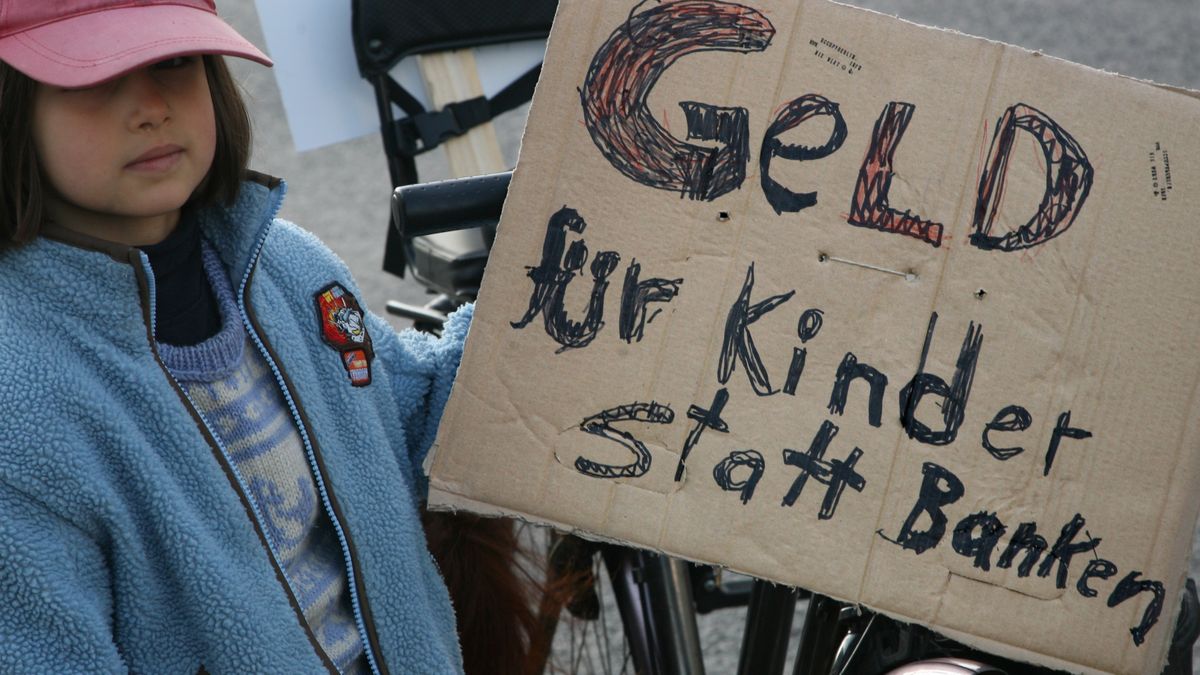 GeLD
für Kinder
Statt Banken